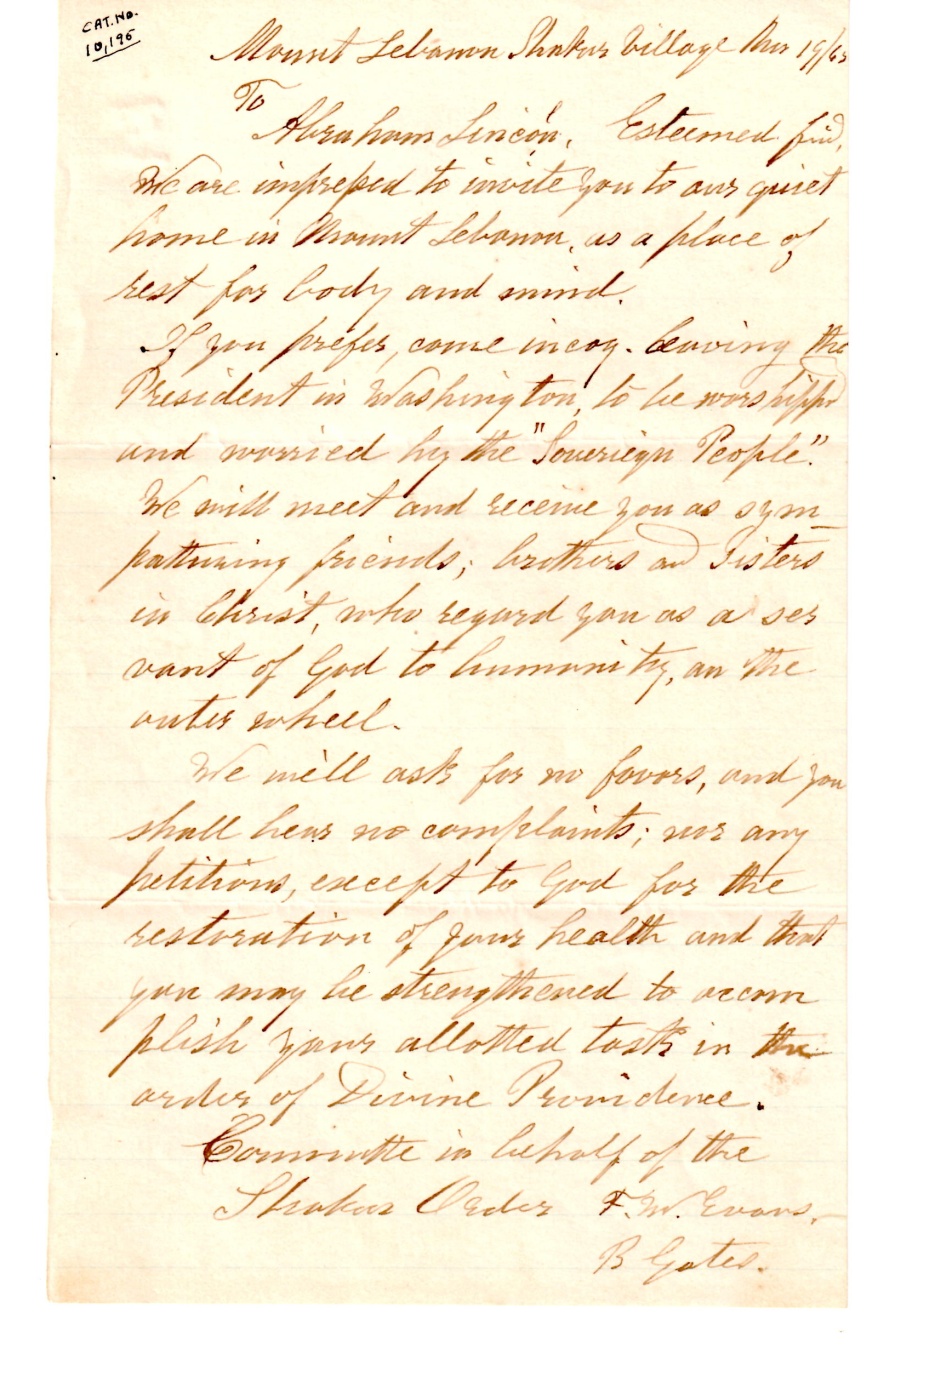 CAT. NO.
10,195
Mount Lebanon Shaker Village 19/65
To
Abraham Lincon, Esteemed frind,
We are impressed to invite you to our quiet
home in Mount Lebanon, as a place of
rest for body and mind.
If you prefer, come incog. leaving the
President in Washington, to be worshippd
and worried by the "Sovereign People".
We will meet and receive you as sym-
pathising friends; brothers and Sisters
in Christ, who regard you as a ser
vant of God to humanity, on the
outer wheel.
We will ask for no favors, and you
shall hear no complaints; nor any
petitions, except to God for the
restoration of your health and that
you may be strengthened to accom
plish your allotted task in the
order of Divine Providence.
Committe in behalf of the
Shaker Order F. W. Evans,
B Gates.